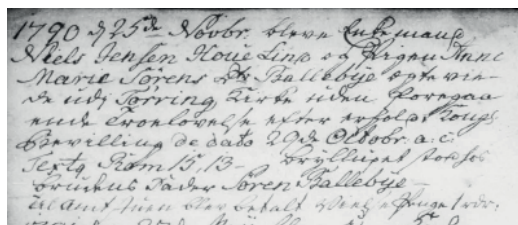 1790 d 25de Novbr. bleve Enkemand
Niels Jensen Houe Lind og Pigen Anne
Marie Sørens Dtr Ballebÿe ægte vie-
de udi Tørring Kirke uden foregaa
ende Troelovelse efter erholdt Kongl
Bevilling de dato 29de Octobr. a: c:
Textq Rom 15, 13 - Brÿllupet stod hos
brudens Fader Søren Ballebÿe -
til Amtstuen blev betalt Vielse Penge 1 rdr: